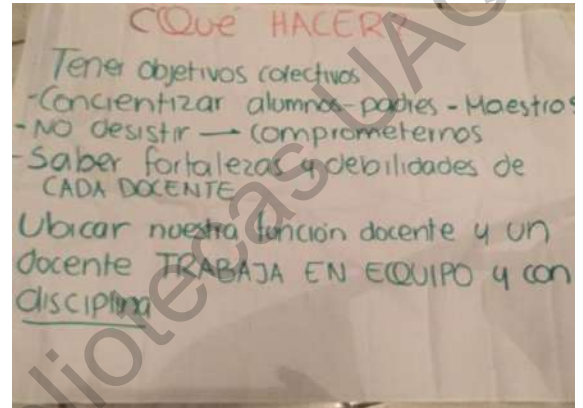 ¿Qué HACER?
Tener objetivos colectivos
-Concientizar alumnos-padres-Maestros
-NO desistir → comprometernos
-Saber fortalezas y debilidades de
CADA DOCENTE
Ubicar nuestra función docente y un
docente TRABAJA EN EQUIPO y con
disciplina
liotecas UAQ